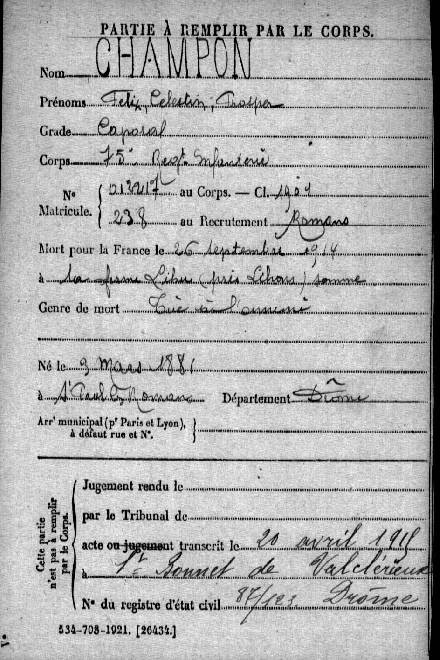 PARTIE À REMPLIR PAR LE CORPS.
Nom CHAMPON
Prénoms Felix, Celestin, Prosper
Grade Caporal
Corps 75e Regt Infanterie
N° Matricule. { 013217 au Corps. — Cl. 1901
238 au Recrutement Romans
Mort pour la France le 26 septembre 1914
à la ferme Lihu (près Lihons) Somme
Genre de mort Tué à l'ennemi
Né le 3 Mars 1881
à St Paul Romans Département Drôme
Arrt municipal (pr Paris et Lyon), à défaut rue et N°. }
Cette partie n'est pas à remplir par le Corps.
Jugement rendu le
par le Tribunal de
acte ou jugement transcrit le 20 avril 1915
à St Bonnet de Valclérieux
N° du registre d'état civil 87/123 Drôme
534-708-1921. [26434.]